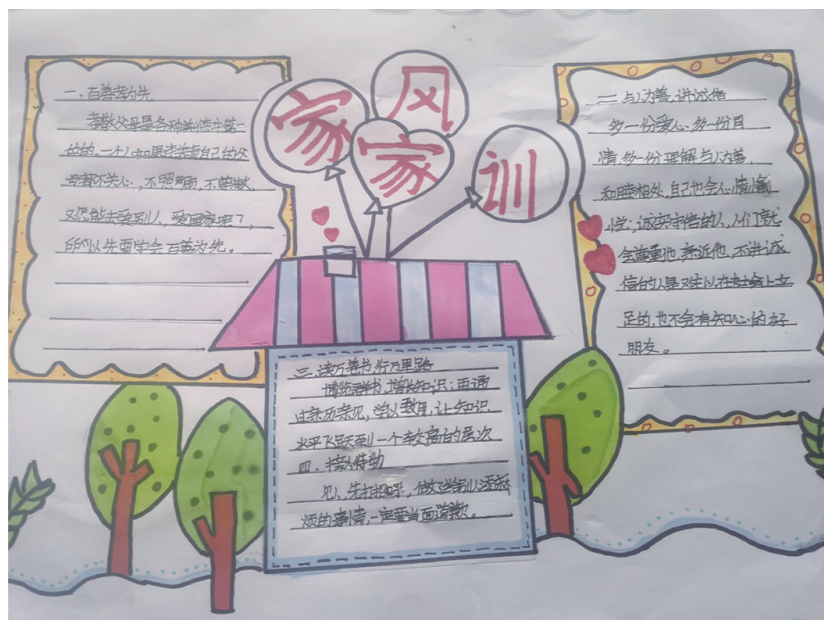 家风
家训
一、百善孝为先
孝敬父母是各种美德中第一
位的,一个人如果连孝重自己的父
母都不关心,不照顾,不尊敬、
又怎能去爱别人,爱国家呢?
所以先要学会百善为先。
二与人为善、讲诚信
多一份爱心、多一份同
情、多一份理解与人为善,
和睦相处,自己也会心情愉
悦;诚实守信的人,人们就
会尊重他,亲近他,不讲诚
信的人是难以在社会上立
足的,也不会有知心的好
朋友。
三、读万卷书,行万里路
博览群书,增长知识;再通
过亲历亲见,学以致用,让知识
水平飞跃到一个较高的层次
四、待人
见人先打招呼,做
烦的事情,一定要当面道歉。